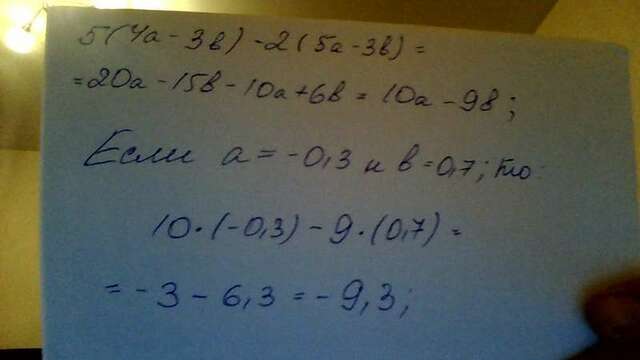 5(4а - 3в) - 2(5а - 3в) =
= 20а - 15в - 10а + 6в = 10а - 9в ;
Если а = -0,3 и в = 0,7; то
10 · (-0,3) - 9 · (0,7) =
= - 3 - 6,3 = - 9,3 ;